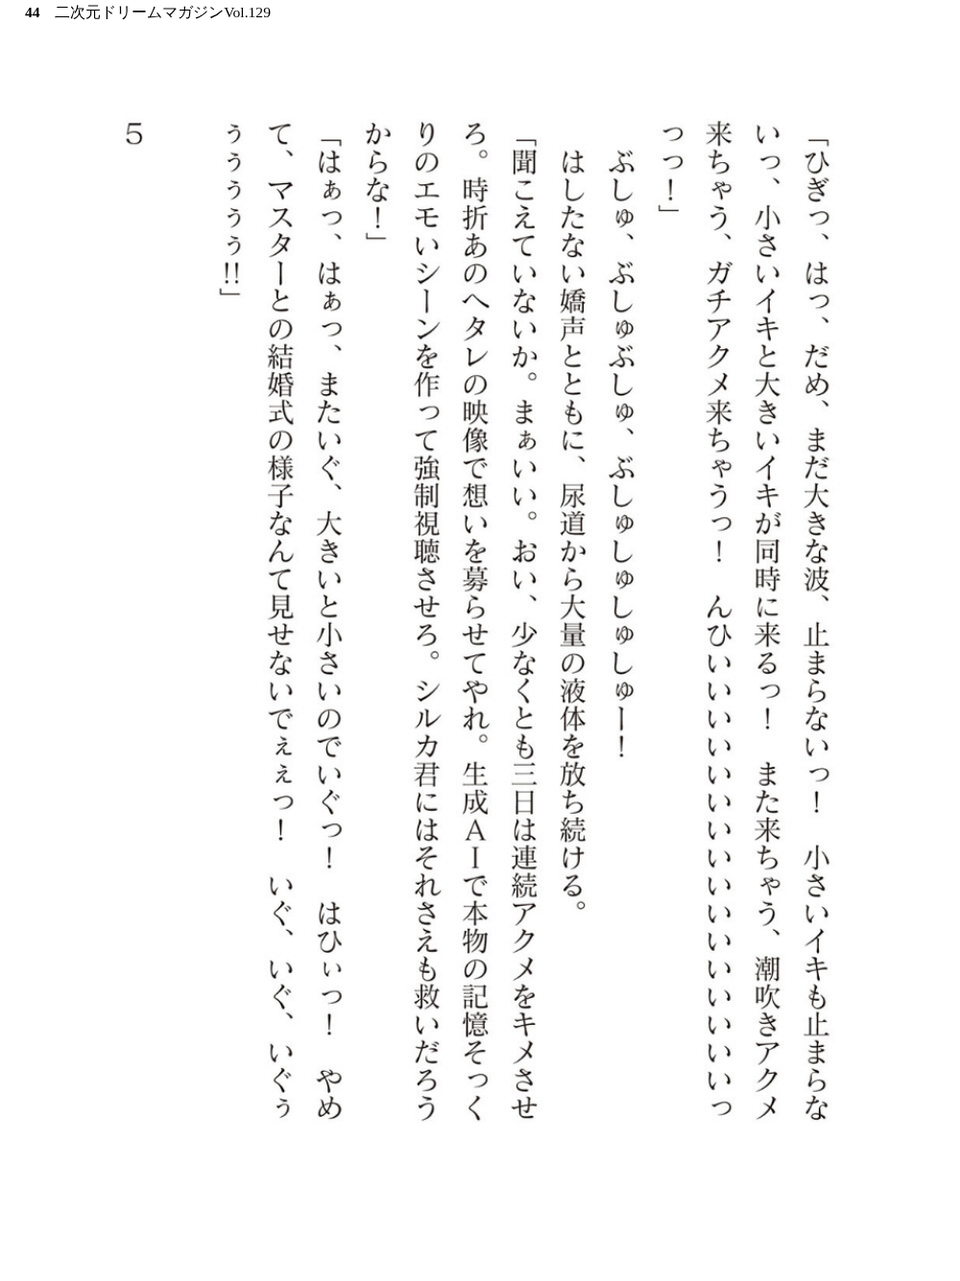 44 二次元ドリームマガジンVol.129
「ひぎっ、はっ、だめ、まだ大きな波、止まらないっ！　小さいイキも止まらな
いっ、小さいイキと大きいイキが同時に来るっ！　また来ちゃう、潮吹きアクメ
来ちゃう、ガチアクメ来ちゃうっ！　んひいいいいいいいいいいいいいいいいっ
っっ！」
　ぶしゅ、ぶしゅぶしゅ、ぶしゅしゅしゅしゅー！
　はしたない嬌声とともに、尿道から大量の液体を放ち続ける。
「聞こえていないか。まぁいい。おい、少なくとも三日は連続アクメをキメさせ
ろ。時折あのヘタレの映像で想いを募らせてやれ。生成ＡＩで本物の記憶そっく
りのエモいシーンを作って強制視聴させろ。シルカ君にはそれさえも救いだろう
からな！」
「はぁっ、はぁっ、またいぐ、大きいと小さいのでいぐっ！　はひぃっ！　やめ
て、マスターとの結婚式の様子なんて見せないでぇぇっ！　いぐ、いぐ、いぐぅ
ぅぅぅぅぅ!!」
５